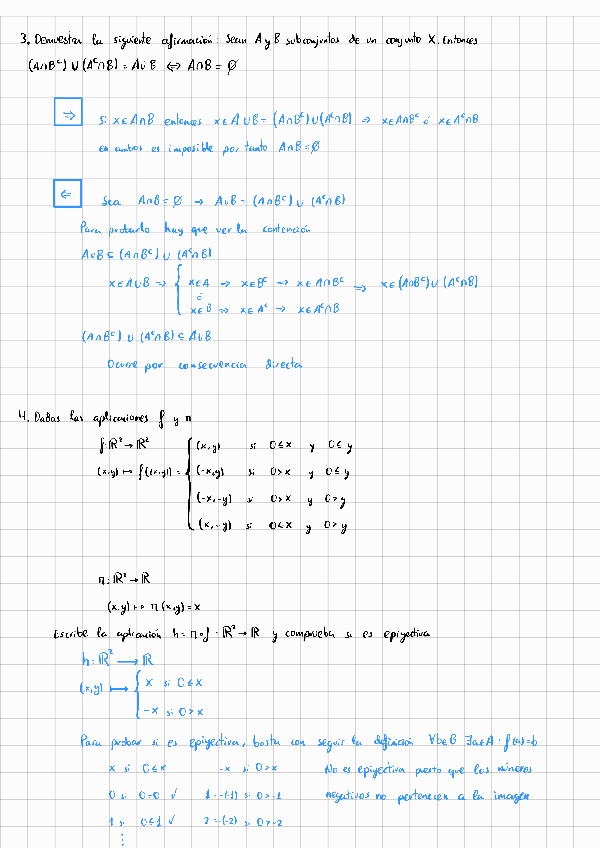 3. Demuestra la siguiente afirmación: Sean A y B subconjuntos de un conjunto X. Entonces
(A∩Bᶜ) ∪ (Aᶜ∩B) = A∪B ⇔ A∩B = ∅
⇒ Si x∈A∩B entonces x∈A∪B = (A∩Bᶜ)∪(Aᶜ∩B) ⇒ x∈A∩Bᶜ ó x∈Aᶜ∩B
en ambos es imposible por tanto A∩B=∅
⇐ Sea A∩B = ∅ → A∪B = (A∩Bᶜ) ∪ (Aᶜ∩B)
Para probarlo hay que ver la contención
A∪B ⊆ (A∩Bᶜ) ∪ (Aᶜ∩B)
x∈A∪B ⇒ { x∈A → x∈Bᶜ → x∈A∩Bᶜ ⇒ x∈(A∩Bᶜ)∪(Aᶜ∩B)
ó
x∈B ⇒ x∈Aᶜ → x∈Aᶜ∩B
(A∩Bᶜ) ∪ (Aᶜ∩B) ⊆ A∪B
Ocurre por consecuencia directa
4. Dadas las aplicaciones f y π
f: ℝ² → ℝ²
(x,y) ↦ f((x,y)) = { (x,y) si 0≤x y 0≤y
(-x,y) si 0>x y 0≤y
(-x,-y) si 0>x y 0>y
(x,-y) si 0≤x y 0>y
π: ℝ² → ℝ
(x,y) ↦ π(x,y) = x
Escribe la aplicación h = π∘f : ℝ² → ℝ y comprueba si es epiyectiva
h: ℝ² → ℝ
(x,y) ↦ { x si 0≤x
-x si 0>x
Para probar si es epiyectiva, basta con seguir la definición ∀b∈B ∃a∈A : f(a)=b
x si 0≤x -x si 0>x No es epiyectiva puesto que los números
0 si 0=0 ✓ 1=-(-1) si 0>-1 negativos no pertenecen a la imagen
1 si 0≤1 ✓ 2=-(-2) si 0>-2
⋮